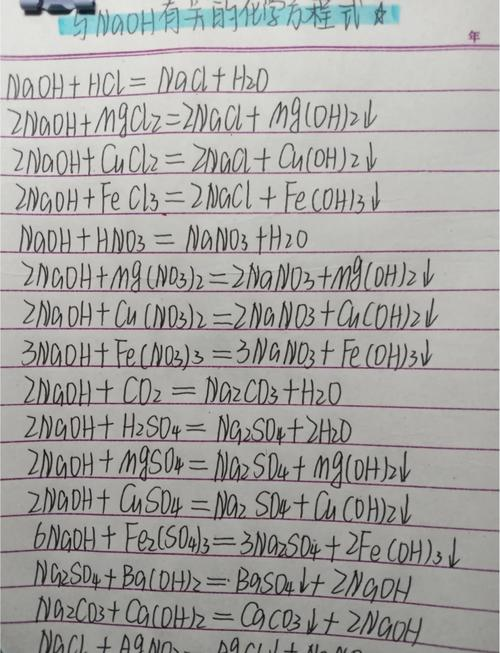 与NaOH有关的化学方程式☆
年
NaOH+HCl=NaCl+H2O
2NaOH+MgCl2=2NaCl+Mg(OH)2↓
2NaOH+CuCl2=2NaCl+Cu(OH)2↓
2NaOH+FeCl3=2NaCl+Fe(OH)3↓
NaOH+HNO3=NaNO3+H2O
2NaOH+Mg(NO3)2=2NaNO3+Mg(OH)2↓
2NaOH+Cu(NO3)2=2NaNO3+Cu(OH)2↓
3NaOH+Fe(NO3)3=3NaNO3+Fe(OH)3↓
2NaOH+CO2=Na2CO3+H2O
2NaOH+H2SO4=Na2SO4+2H2O
2NaOH+MgSO4=Na2SO4+Mg(OH)2↓
2NaOH+CuSO4=Na2SO4+Cu(OH)2↓
6NaOH+Fe2(SO4)3=3Na2SO4+2Fe(OH)3↓
Na2SO4+Ba(OH)2=BaSO4↓+2NaOH
Na2CO3+Ca(OH)2=CaCO3↓+2NaOH
NaCl+AgNO